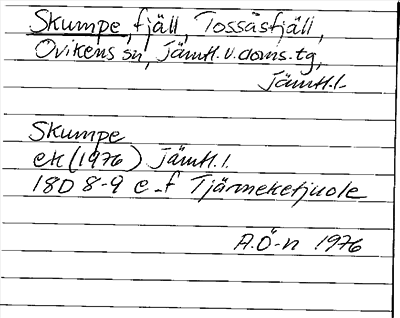 Skumpe, fjäll, Tossåsfjäll,
Ovikens sn, Jämtl. v. doms. tg,
Jämtl. l.
Skumpe
ek (1976) Jämtl. l.
18D 8-9 e-f Tjärneketjuole
A.Ö-n 1976